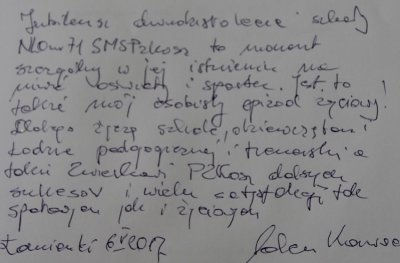 Jubileusz dwudziestolecia szkoły
SMS PZKosz to moment
szczególny w jej istnieniu na
oświaty i sportu. Jest to
także mój osobisty epizod życiowy!
Dlatego życzę szkole, dziewczętom i
kadrze pedagogicznej, trenerskiej a
także Związkowi PZKosz dalszych
sukcesów i wielu satysfakcji tak
sportowych jak i życiowych
Łomianki 6 VI 2017